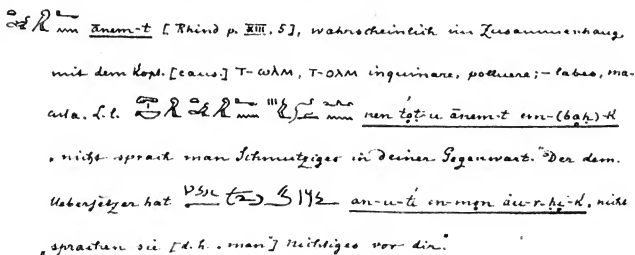 ānem-t [Rhind p. XIII. 5], wahrscheinlich im Zusammenhang
mit dem Kopt. [caus.] Ⲧ-ⲱⲗⲙ, Ⲧ-ⲟⲗⲙ inquinare, polluere; – labes, ma-
cula. L.l. nen tót-u ānem-t em-(baḥ)-k
„nicht sprach man Schmutziges in deiner Gegenwart." Der dem.
Uebersetzer hat an-u-ti en-mon áu-r-ḥi-k, nicht
„sprachen sie [d.h. „man"] Nichtiges vor dir."